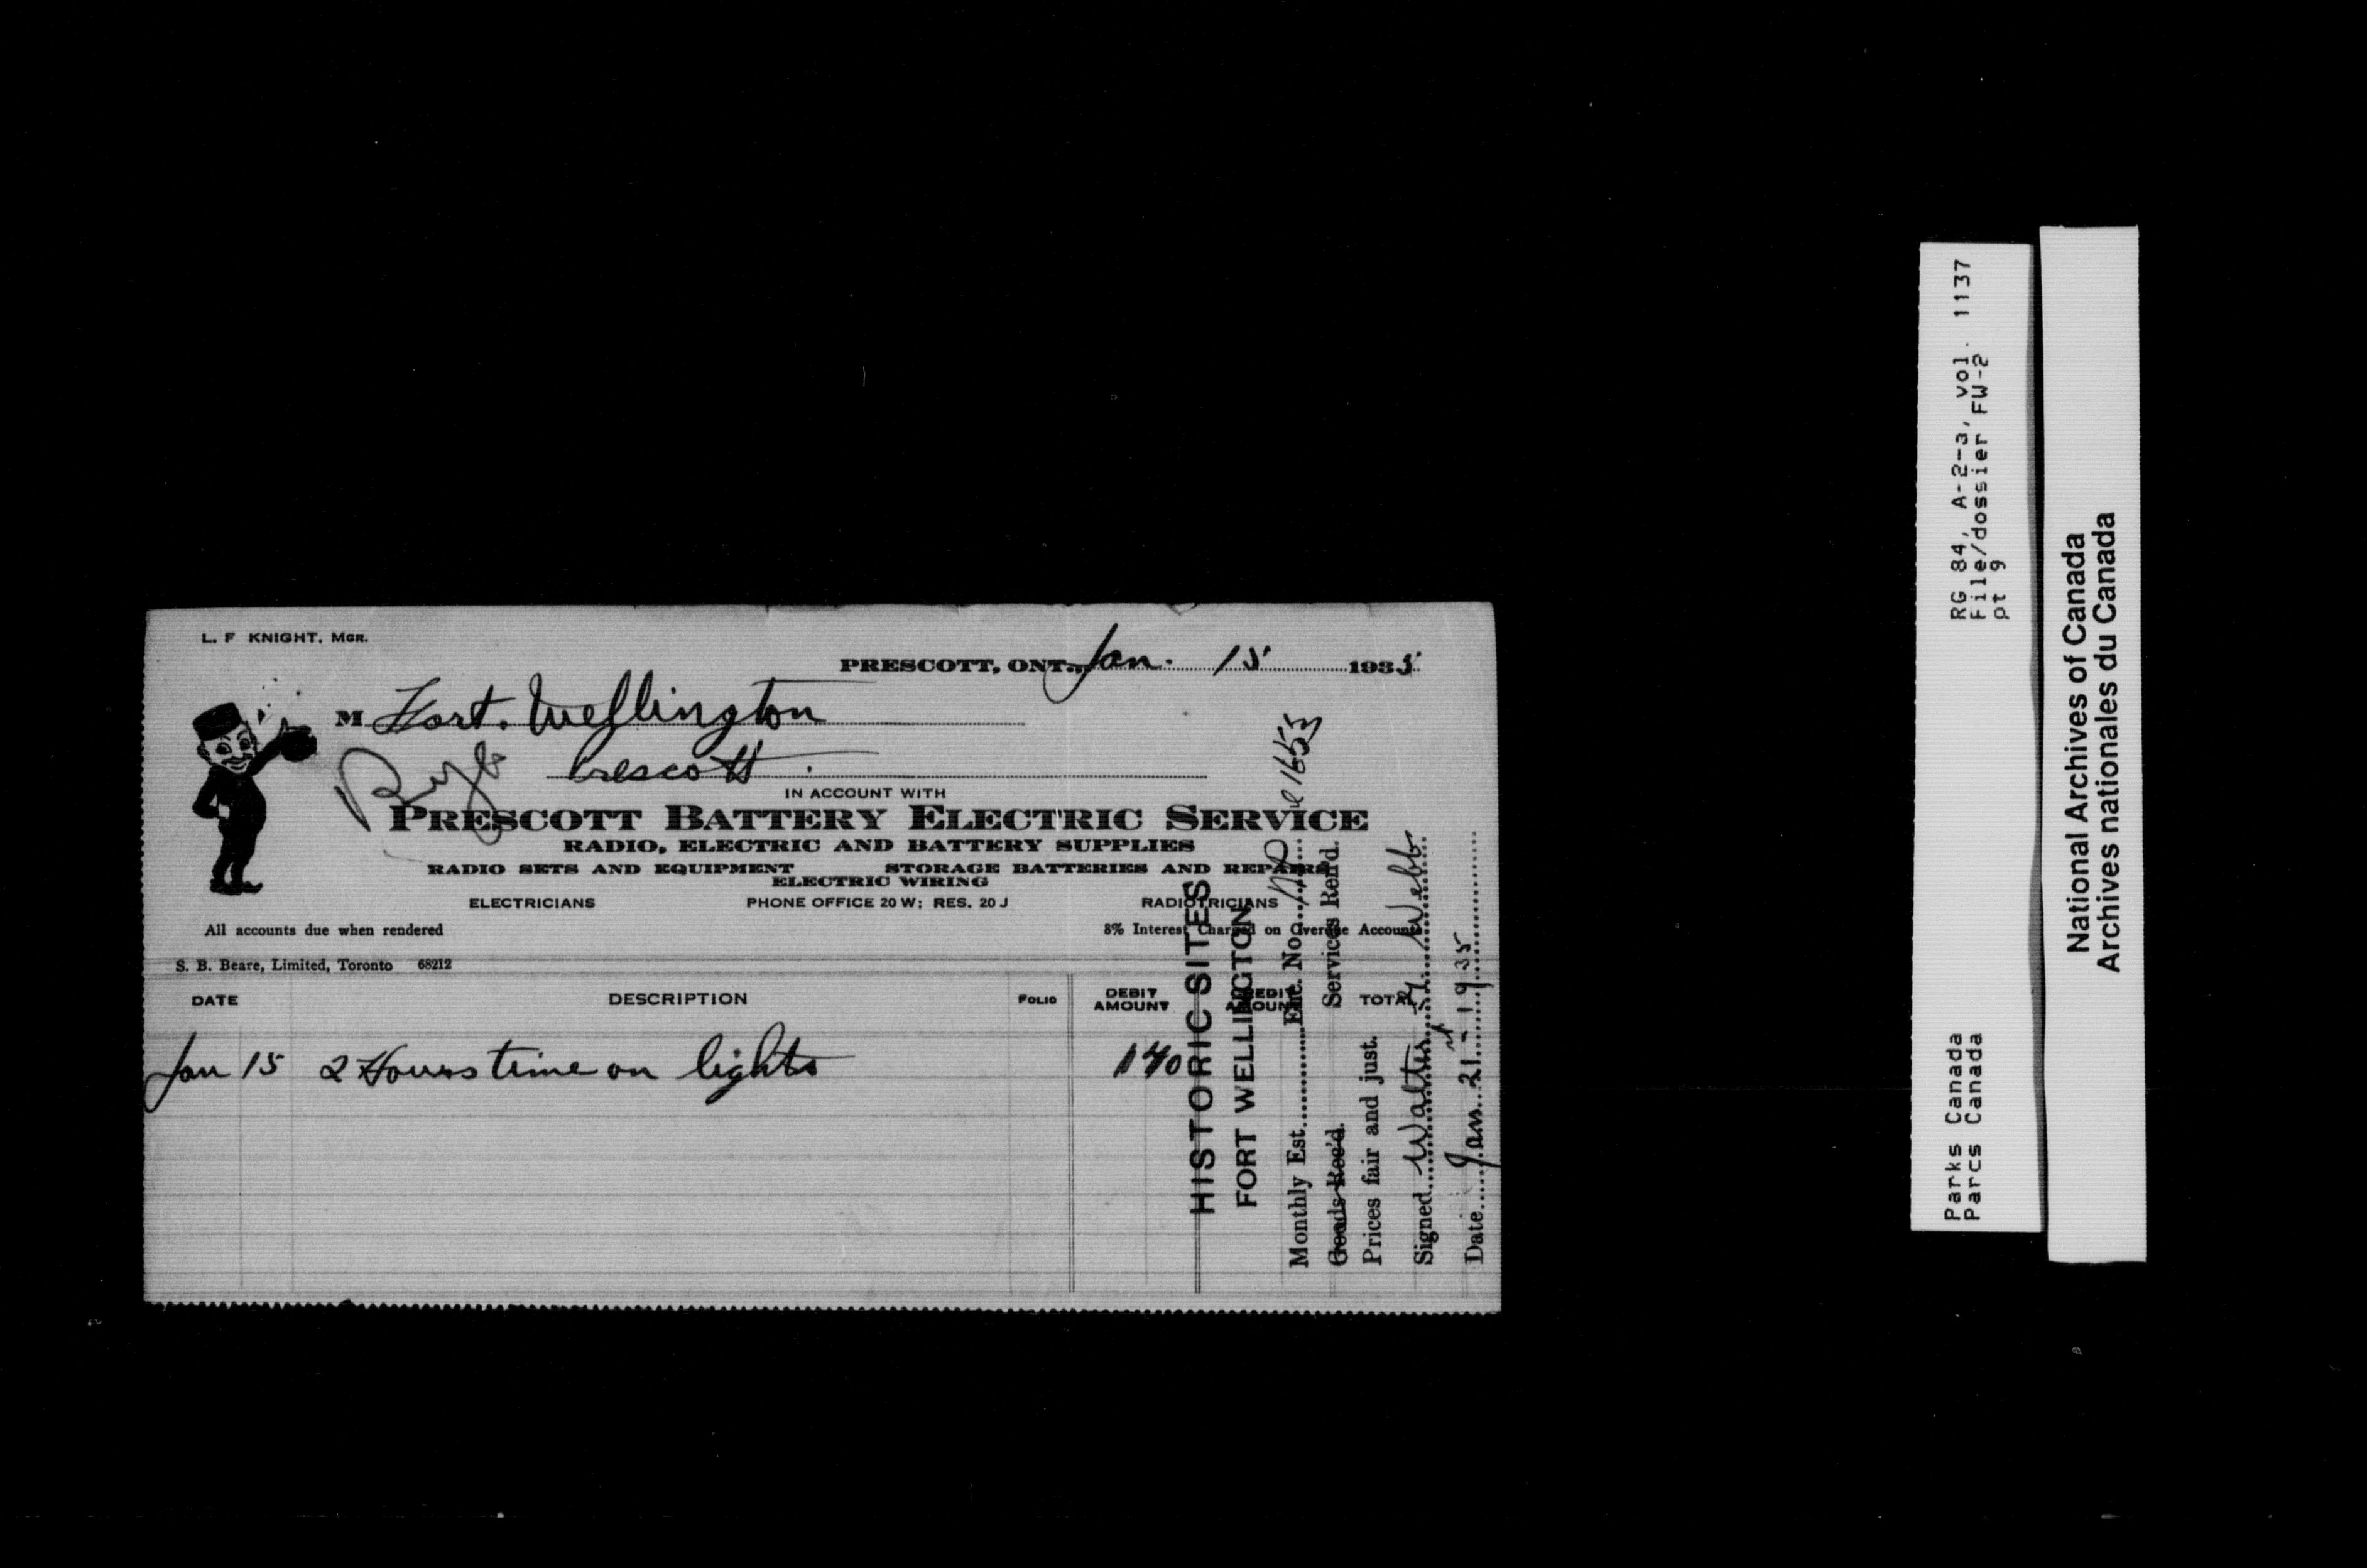 L. F KNIGHT, MGR.
PRESCOTT, ONT., Jan. 15 1935
M Fort. Wellington
Prescott.
IN ACCOUNT WITH
PRESCOTT BATTERY ELECTRIC SERVICE
RADIO, ELECTRIC AND BATTERY SUPPLIES
RADIO SETS AND EQUIPMENT STORAGE BATTERIES AND REPAIRS
ELECTRIC WIRING
ELECTRICIANS PHONE OFFICE 20 W; RES. 20 J RADIOTRICIANS
All accounts due when rendered 8% Interest Charged on Overdue Accounts
S. B. Beare, Limited, Toronto 68212
DATE DESCRIPTION FOLIO DEBIT AMOUNT CREDIT AMOUNT TOTAL
Jan 15 2 Hours time on lights 1 40
HISTORIC SITES
FORT WELLINGTON
Monthly Est. Enc. No. 1653
Goods Rec'd. Services Rend'd.
Prices fair and just.
Signed Walter Webb
Date Jan 21st - 1935
RG 84, A-2-3, vol. 1137
File/dossier FW-2
pt 9
Parks Canada
Parcs Canada
National Archives of Canada
Archives nationales du Canada